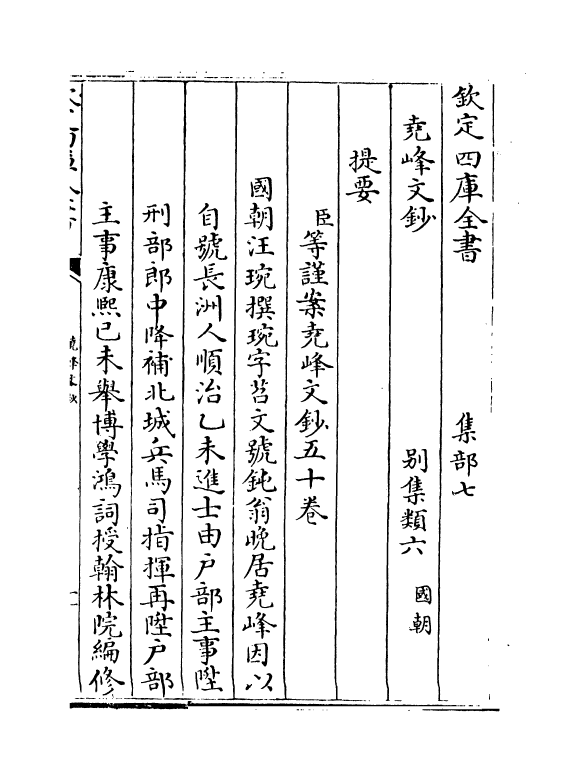 欽定四庫全書 集部七
堯峰文鈔 别集類六 國朝
提要
臣等謹案堯峰文鈔五十卷
國朝汪琬撰琬字苕文號鈍翁晚居堯峰因以
自號長洲人順治乙未進士由户部主事陞
刑部郎中降補北城兵馬司指揮再陞户部
主事康熙己未舉博學鴻詞授翰林院編修